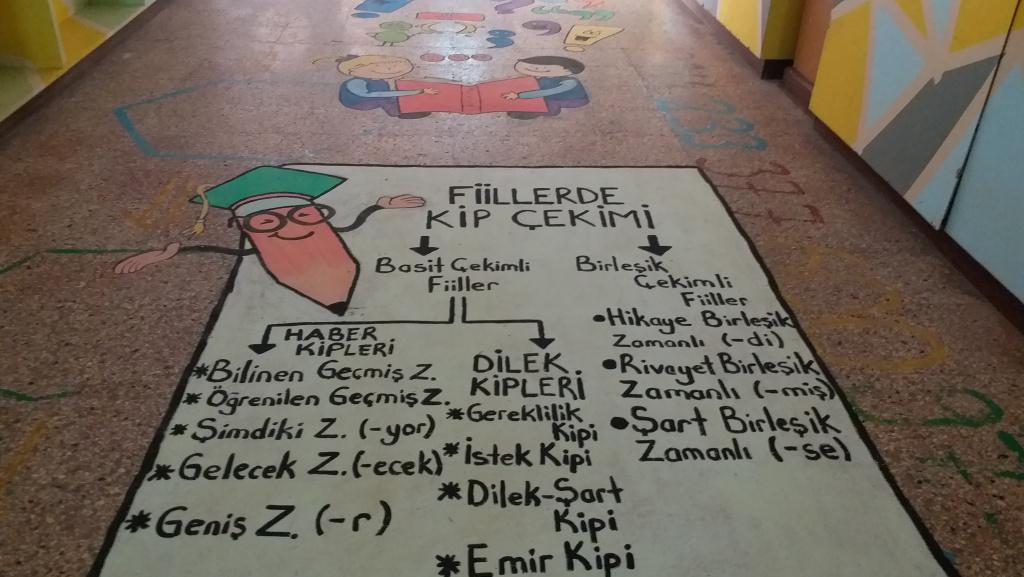 FİİLLERDE
KİP ÇEKİMİ
Basit Çekimli
Fiiller
HABER
KİPLERİ
*Bilinen Geçmiş Z.
*Öğrenilen Geçmiş Z.
*Şimdiki Z. (-yor)
*Gelecek Z. (-ecek)
*Geniş Z. (-r)
DİLEK
KİPLERİ
*Gereklilik
Kipi
*İstek Kipi
*Dilek-Şart
Kipi
*Emir Kipi
Birleşik
Çekimli
Fiiller
•Hikaye Birleşik
Zamanlı (-di)
•Rivayet Birleşik
Zamanlı (-miş)
•Şart Birleşik
Zamanlı (-se)